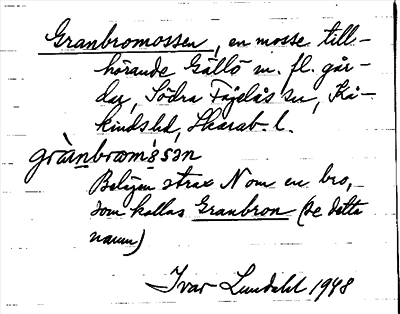 Granbromossen, en mosse till-
hörande Gällö m. fl. går-
dar, Södra Fågelås sn, Kå-
kindshd, Skarab. l.
grànbroṃ̀sən
Belägen strax N om en bro,
som kallas Granbron (se detta
namn)
Ivar Lundahl 1948